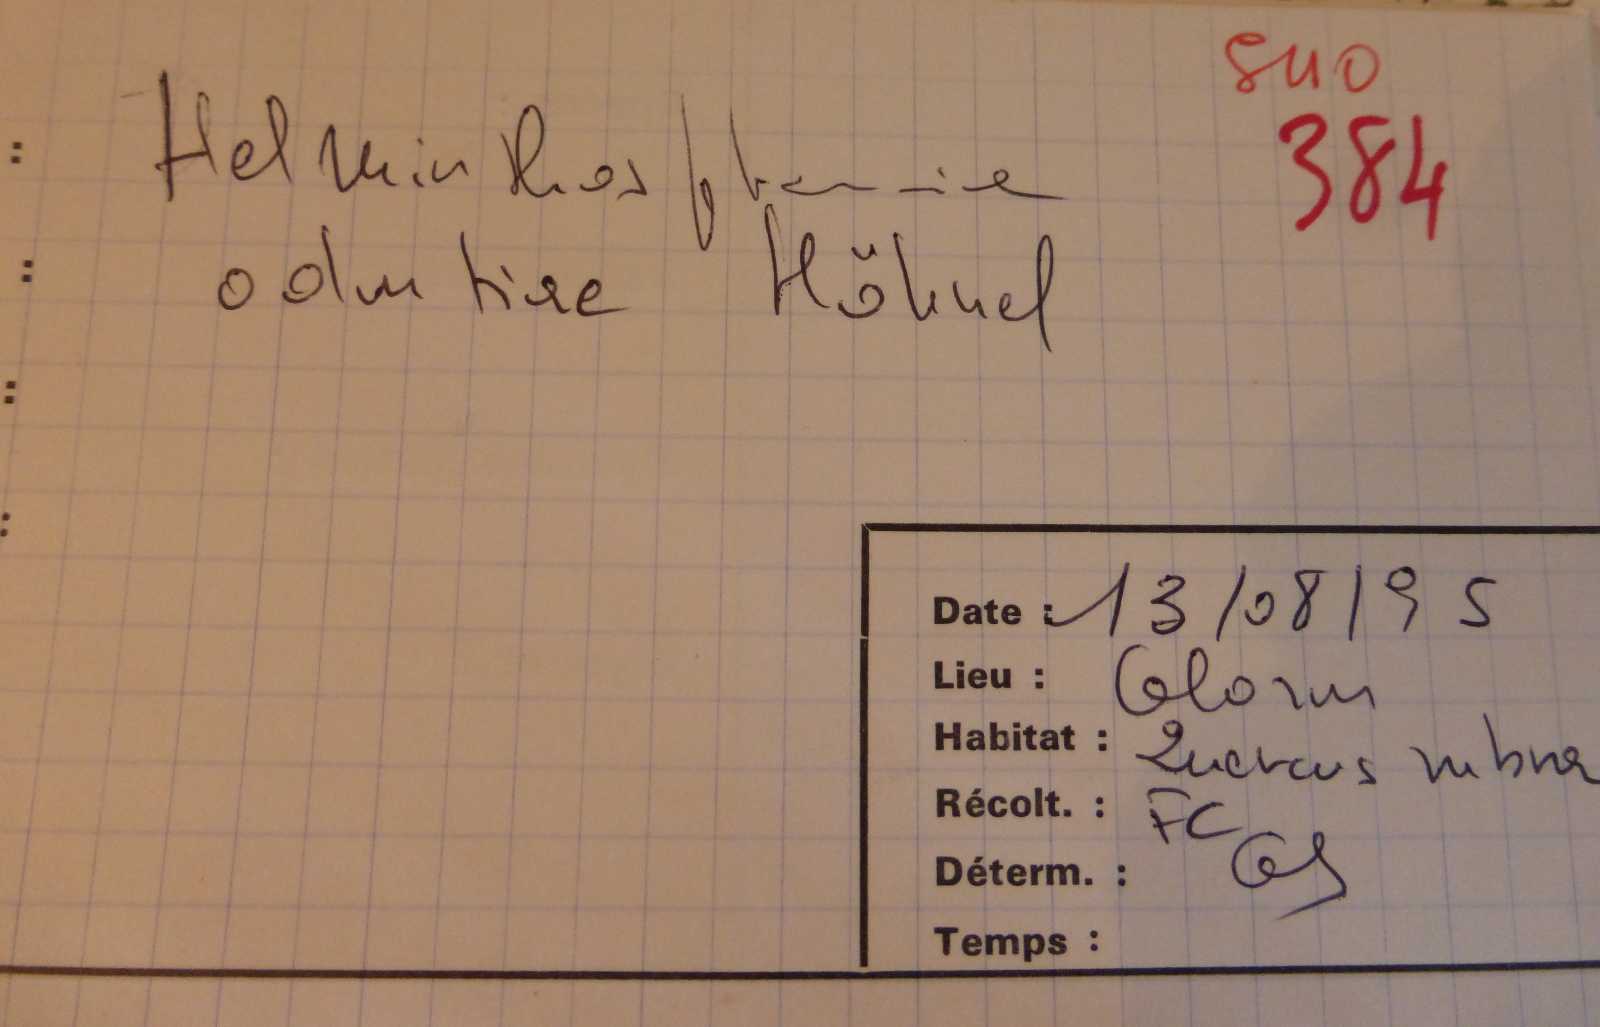 SHO
384
Helminthosphaeria
odontiae Höhnel
Date : 13/08/95
Lieu : Glomel
Habitat : Quercus rubra
Récolt. : FC
Déterm. : GS
Temps :